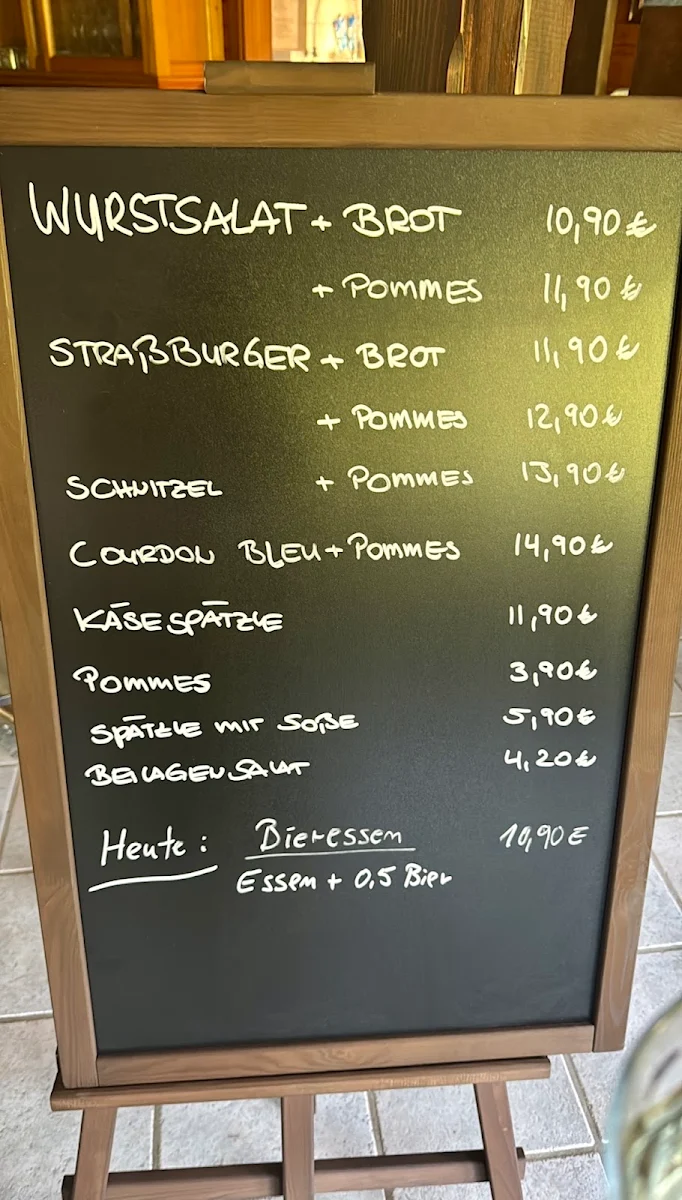 WURSTSALAT + BROT 10,90 €
+ POMMES 11,90 €
STRAßBURGER + BROT 11,90 €
+ POMMES 12,90 €
SCHNITZEL + POMMES 13,90 €
COURDON BLEU + POMMES 14,90 €
KÄSESPÄTZLE 11,90 €
POMMES 3,90 €
SPÄTZLE MIT SOßE 5,90 €
BEILAGENSALAT 4,20 €
Heute: Bieressen 10,90 €
Essen + 0,5 Bier